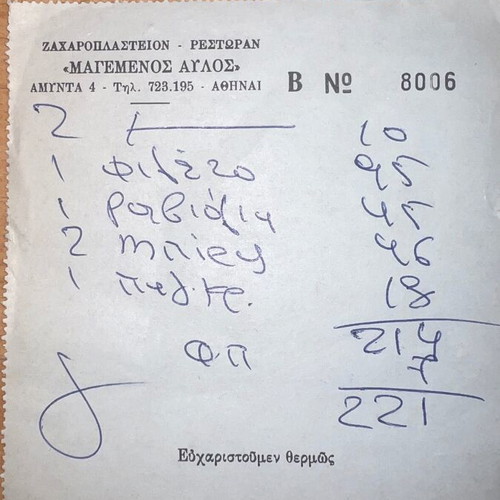 ΖΑΧΑΡΟΠΛΑΣΤΕΙΟΝ - ΡΕΣΤΩΡΑΝ
«ΜΑΓΕΜΕΝΟΣ ΑΥΛΟΣ»
ΑΜΥΝΤΑ 4 - Τηλ. 723.195 - ΑΘΗΝΑΙ Β Nº 8006
2 10
1 φιλέτο 95
1 ραβιόλια 45
2 μπίρες 46
1 παγ. κρ. 18
214
Φ.Π 7
221
Εὐχαριστοῦμεν θερμῶς